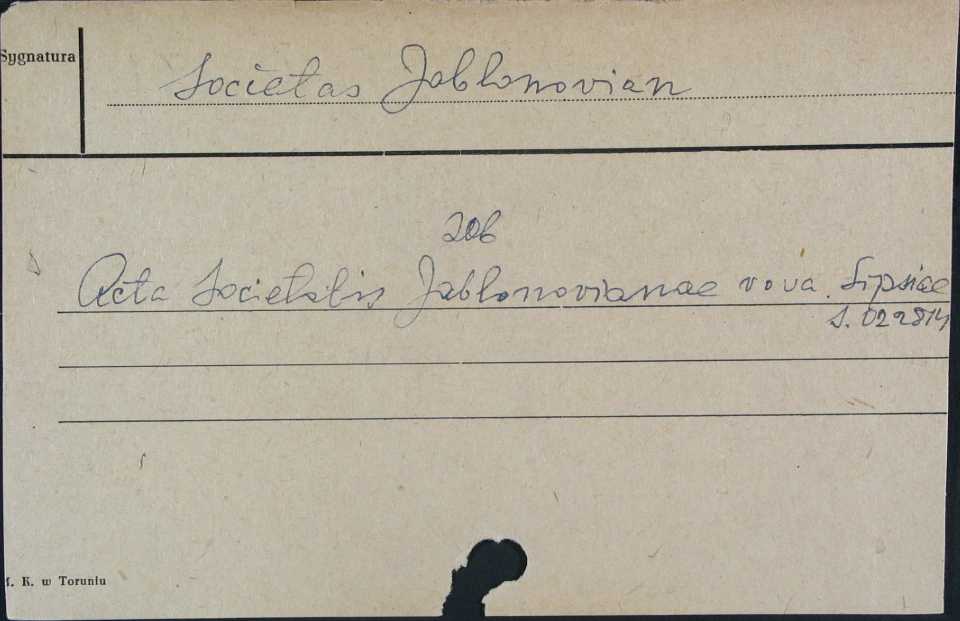 Sygnatura
Societas Jablonovian
zob
Acta Societatis Jablonovianae nova. Lipsiae
S. 022814
M. K. w Toruniu